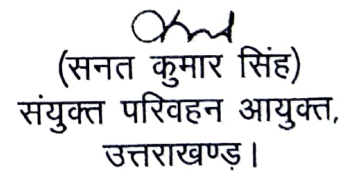 (सनत कुमार सिंह)
संयुक्त परिवहन आयुक्त,
उत्तराखण्ड़।